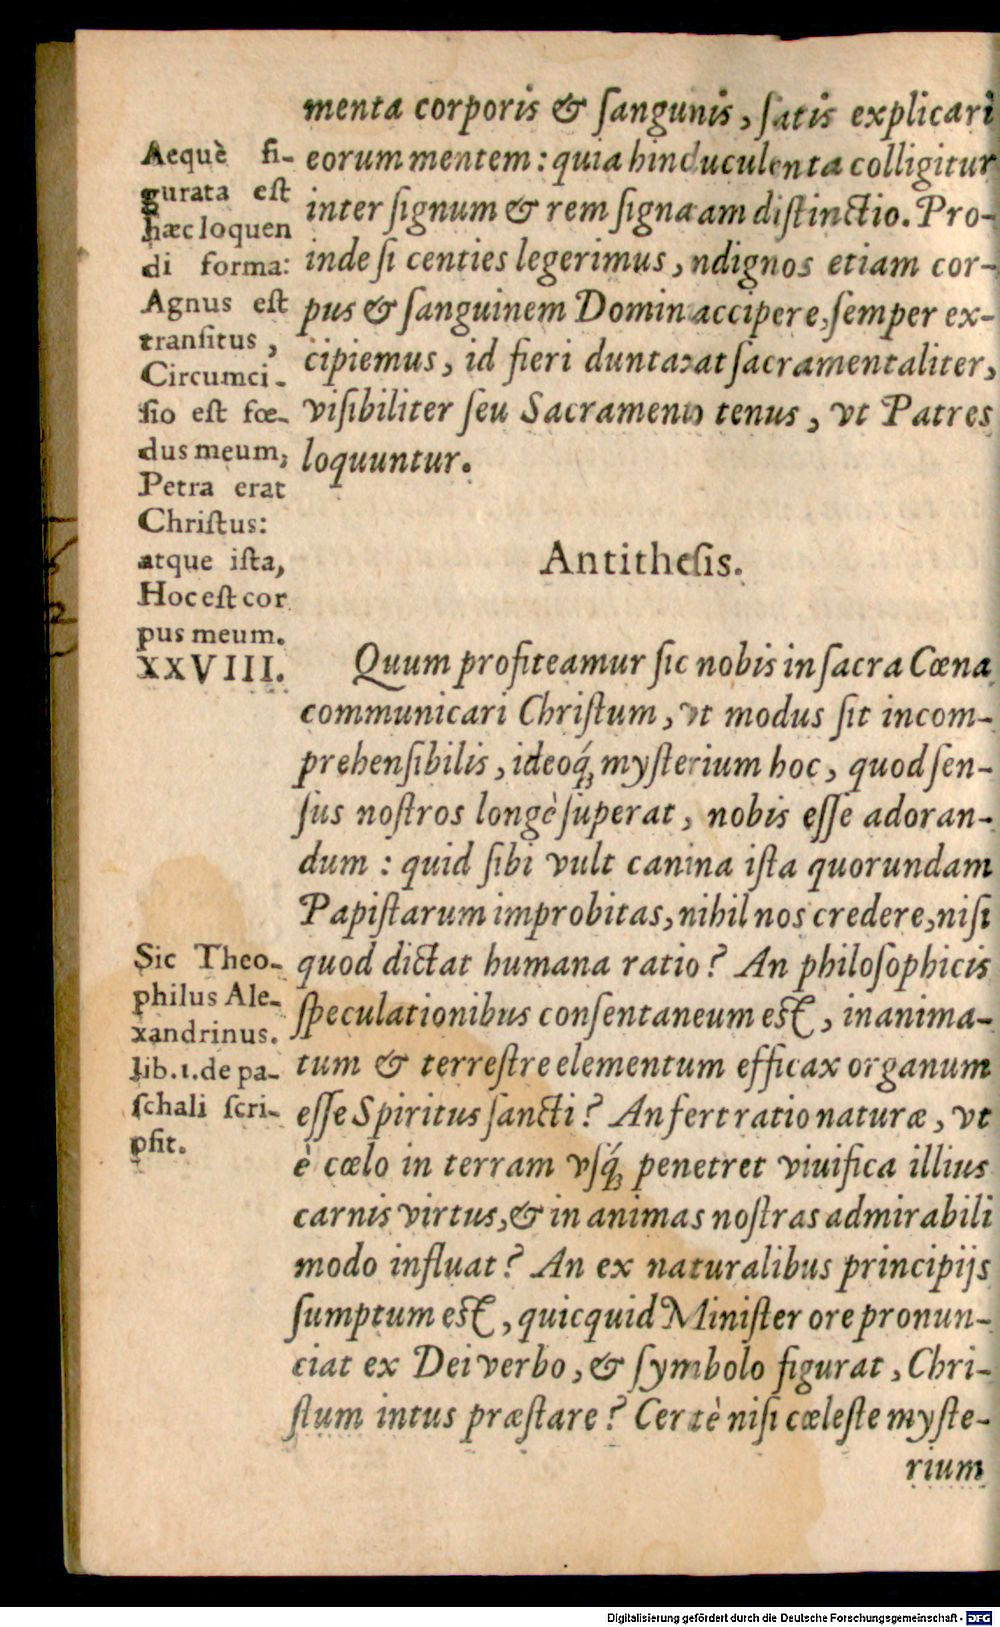 menta corporis & ſangunis, ſatis explicari
eorum mentem: quia hinc luculenta colligitur
inter ſignum & rem ſignatam diſtinctio. Pro-
inde ſi centies legerimus, indignos etiam cor-
pus & ſanguinem Domini accipere, ſemper ex-
cipiemus, id fieri duntaxat ſacramentaliter,
viſibiliter ſeu Sacramento tenus, vt Patres
loquuntur.
Aequè fi-
gurata eſt
hæc loquen
di forma:
Agnus eſt
tranſitus,
Circumci-
ſio eſt fœ-
dus meum,
Petra erat
Chriſtus:
atque iſta,
Hoc eſt cor
pus meum.
XXVIII.
Antitheſis.
Quum profiteamur ſic nobis in ſacra Cœna
communicari Chriſtum, vt modus ſit incom-
prehenſibilis, ideoq́; myſterium hoc, quod ſen-
ſus noſtros longè ſuperat, nobis eſſe adoran-
dum: quid ſibi vult canina iſta quorundam
Papiſtarum improbitas, nihil nos credere, niſi
quod dictat humana ratio? An philoſophicis
ſpeculationibus conſentaneum eſt, inanima-
tum & terreſtre elementum efficax organum
eſſe Spiritus ſancti? An fert ratio naturæ, vt
è cœlo in terram vſq́; penetret viuifica illius
carnis virtus, & in animas noſtras admirabili
modo influat? An ex naturalibus principijs
ſumptum eſt, quicquid Miniſter ore pronun-
ciat ex Dei verbo, & ſymbolo figurat, Chri-
ſtum intus præſtare? Certè niſi cœleſte myſte-
rium
Sic Theo-
philus Ale-
xandrinus.
lib. 1. de pa-
ſchali ſcri-
pſit.
Digitalisierung gefördert durch die Deutsche Forschungsgemeinschaft - DFG